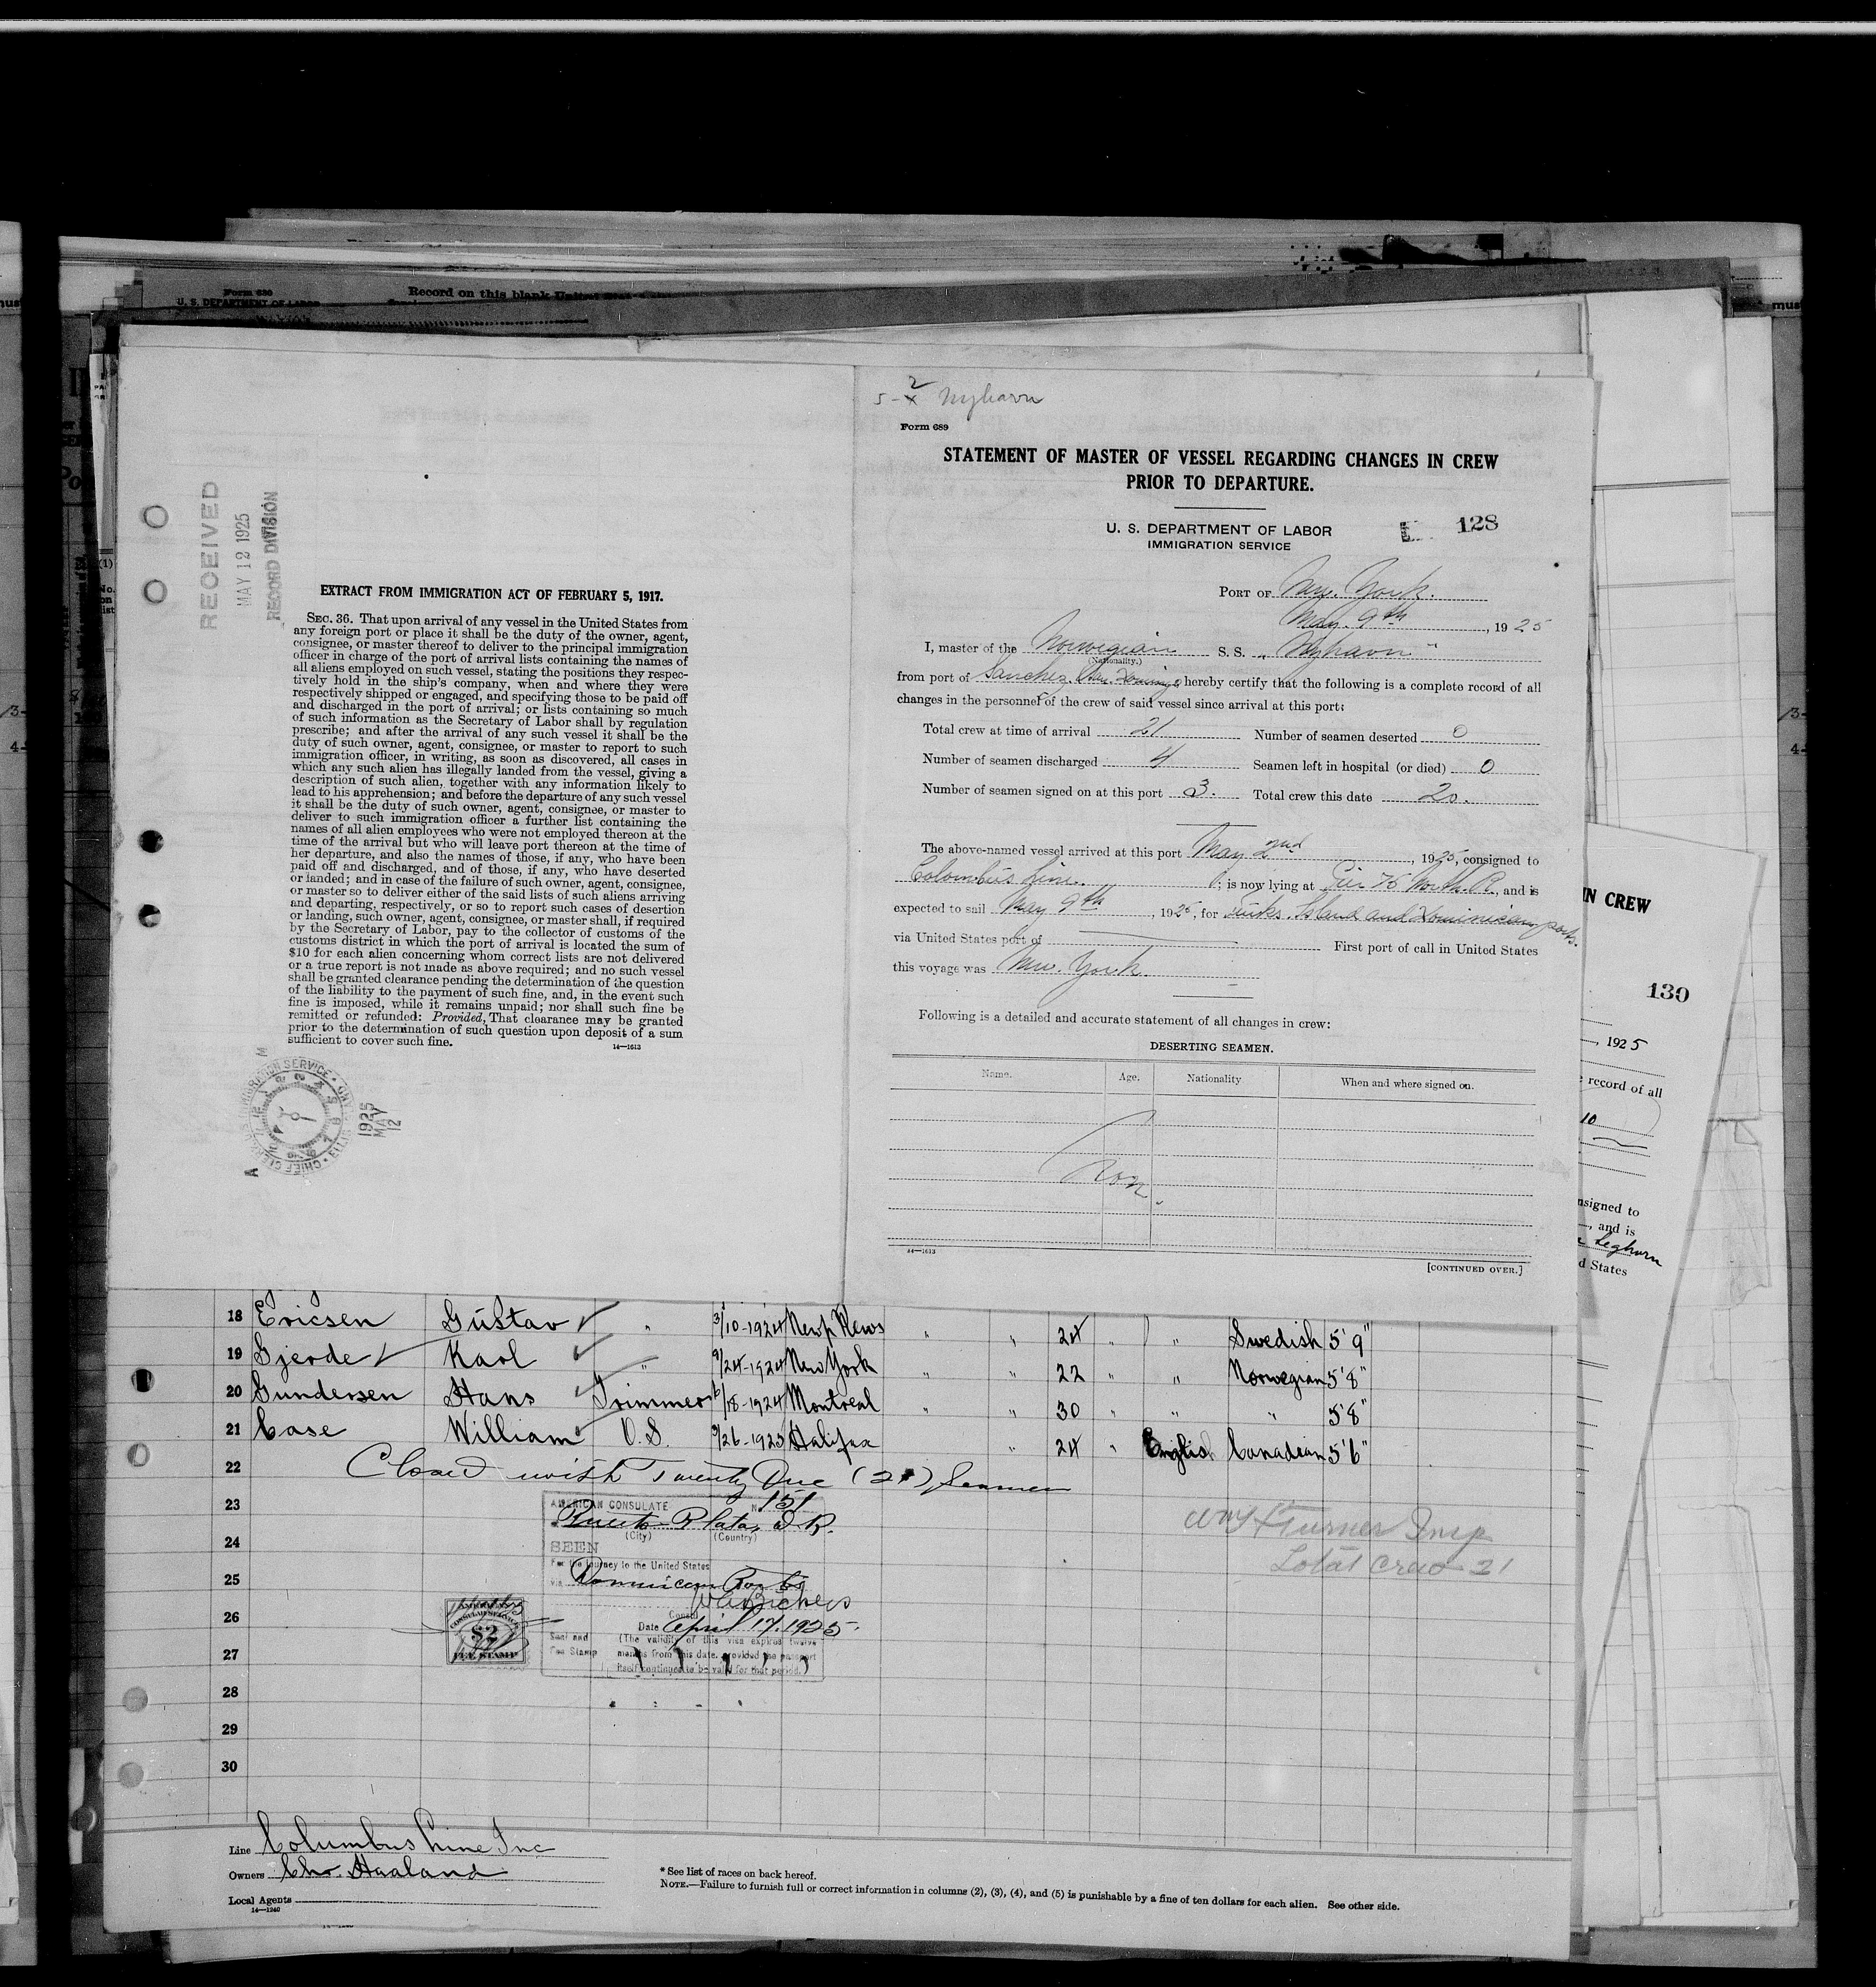 Form 630
U. S. DEPARTMENT OF LABOR
Record on this blank
RECEIVED
MAY 12 1925
RECORD DIVISION
EXTRACT FROM IMMIGRATION ACT OF FEBRUARY 5, 1917.
SEC. 36. That upon arrival of any vessel in the United States from
any foreign port or place it shall be the duty of the owner, agent,
consignee, or master thereof to deliver to the principal immigration
officer in charge of the port of arrival lists containing the names of
all aliens employed on such vessel, stating the positions they respec-
tively hold in the ship's company, when and where they were
respectively shipped or engaged, and specifying those to be paid off
and discharged in the port of arrival; or lists containing so much
of such information as the Secretary of Labor shall by regulation
prescribe; and after the arrival of any such vessel it shall be the
duty of such owner, agent, consignee, or master to report to such
immigration officer, in writing, as soon as discovered, all cases in
which any such alien has illegally landed from the vessel, giving a
description of such alien, together with any information likely to
lead to his apprehension; and before the departure of any such vessel
it shall be the duty of such owner, agent, consignee, or master to
deliver to such immigration officer a further list containing the
names of all alien employees who were not employed thereon at the
time of the arrival but who will leave port thereon at the time of
her departure, and also the names of those, if any, who have been
paid off and discharged, and of those, if any, who have deserted
or landed; and in case of the failure of such owner, agent, consignee,
or master so to deliver either of the said lists of such aliens arriving
and departing, respectively, or so to report such cases of desertion
or landing, such owner, agent, consignee, or master shall, if required
by the Secretary of Labor, pay to the collector of customs of the
customs district in which the port of arrival is located the sum of
$10 for each alien concerning whom correct lists are not delivered
or a true report is not made as above required; and no such vessel
shall be granted clearance pending the determination of the question
of the liability to the payment of such fine, and, in the event such
fine is imposed, while it remains unpaid; nor shall such fine be
remitted or refunded: Provided, That clearance may be granted
prior to the determination of such question upon deposit of a sum
sufficient to cover such fine.
14—1613
1925
MAY
12
5-2 Nyhavn
Form 689
STATEMENT OF MASTER OF VESSEL REGARDING CHANGES IN CREW
PRIOR TO DEPARTURE.
U. S. DEPARTMENT OF LABOR
IMMIGRATION SERVICE
128
PORT OF New York.
May. 9th, 1925
I, master of the Norwegian S. S. „ Nyhavn "
(Nationality.)
from port of Sanchez, hereby certify that the following is a complete record of all
changes in the personnel of the crew of said vessel since arrival at this port:
Total crew at time of arrival 21 Number of seamen deserted 0
Number of seamen discharged 4 Seamen left in hospital (or died) 0
Number of seamen signed on at this port 3. Total crew this date 20.
The above-named vessel arrived at this port May 2nd, 1925, consigned to
Colombus Line.; is now lying at Pier 75 North. R., and is
expected to sail May 9th, 1925, for Turks. Island and Dominican ports.
via United States port of First port of call in United States
this voyage was New. York.
Following is a detailed and accurate statement of all changes in crew:
DESERTING SEAMEN.
Name. Age. Nationality When and where signed on.
Non.
14—1613
[CONTINUED OVER.]
IN CREW
130
, 1925
record of all
10
nsigned to
, and is
Leghorn
d States
18 Ericsen Gustav " 3/10-1924 Newp News " " 24 " " Swedish 5'9"
19 Gjerde Karl " 9/24-1924 New York " " 22 " " Norwegian 5'8"
20 Gundersen Hans Trimmer 6/18-1924 Montreal " " 30 " " " 5'8"
21 Case William O.S. 3/26-1925 Halifax " 24 " English Canadian 5'6"
22 Closed with Twenty One (21) Seamen
23 AMERICAN CONSULATE No 151
Puerto Plata, D.R.
(City) (Country)
24 SEEN
For the journey to the United States
25 via Dominican Ports
26 Consul
Date April 17, 1925.
Seal and
Fee Stamp
(The validity of this visa expires twelve
27 months from this date, provided the passport
itself continues to be valid for that period.)
$2
FEE STAMP
28
29
30
Wm H Turner Insp
Total Crew 21
Line Columbus Line Inc
Owners Chr. Haaland
Local Agents
14—1240
* See list of races on back hereof.
NOTE.—Failure to furnish full or correct information in columns (2), (3), (4), and (5) is punishable by a fine of ten dollars for each alien. See other side.